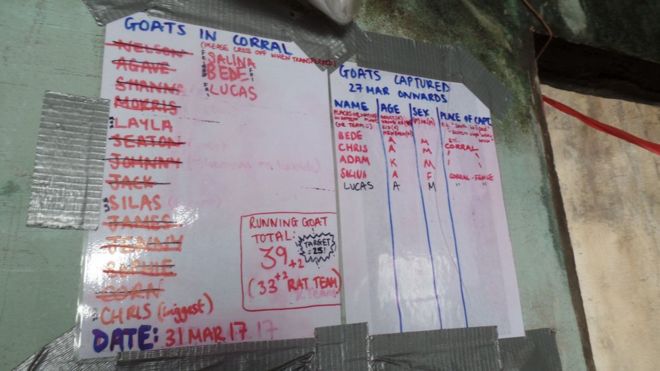 GOATS IN CORRAL
(PLEASE CROSS OFF WHEN TRANSFERRED)
NELSON
AGAVE
SHANNS
MORRIS
LAYLA
SEATON
JOHNNY
JACK
SILAS
JAMES
JENNY
CORN
CHRIS (biggest)
SALINA
BEDE
LUCAS
RUNNING GOAT
TOTAL:
39 +2
TARGET
= 25!
(33 +2 RAT TEAM)
DATE: 31 MAR 17
GOATS CAPTURED
27 MAR ONWARDS
NAME AGE SEX PLACE OF CAPT.
(OR TEAM)
BEDE A M CORRAL
CHRIS A M "
ADAM K M "
SALINA A F CORRAL-FENCE
LUCAS A M "